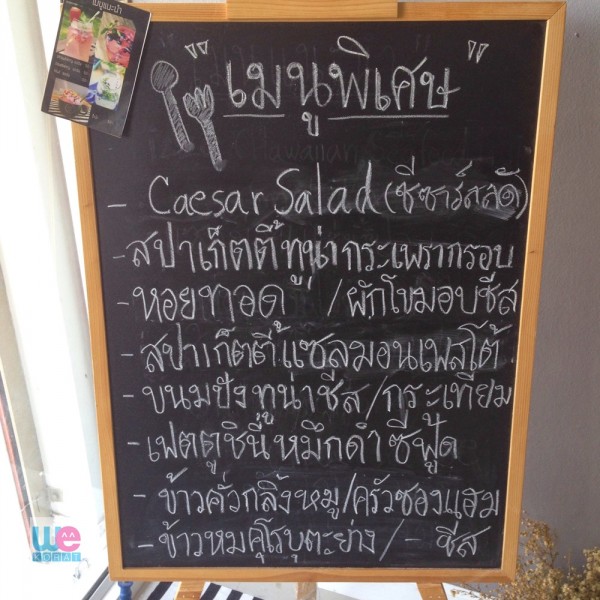 เมนูแนะนำ
"เมนูพิเศษ"
- Caesar Salad (ซีซาร์สลัด)
- สปาเก็ตตี้ทูน่ากระเพรากรอบ
- หอยทอด /ผักโขมอบชีส
- สปาเก็ตตี้แซลมอนเพสโต้
- ขนมปังทูน่าชีส/กระเทียม
- เฟตตูชินี่หมึกดำซีฟู้ด
- ข้าวคั่วกลิ้งหมู/ครัวซองแฮม
- ข้าวหมูคุโรบุตะย่าง/- ชีส
We
KORAT